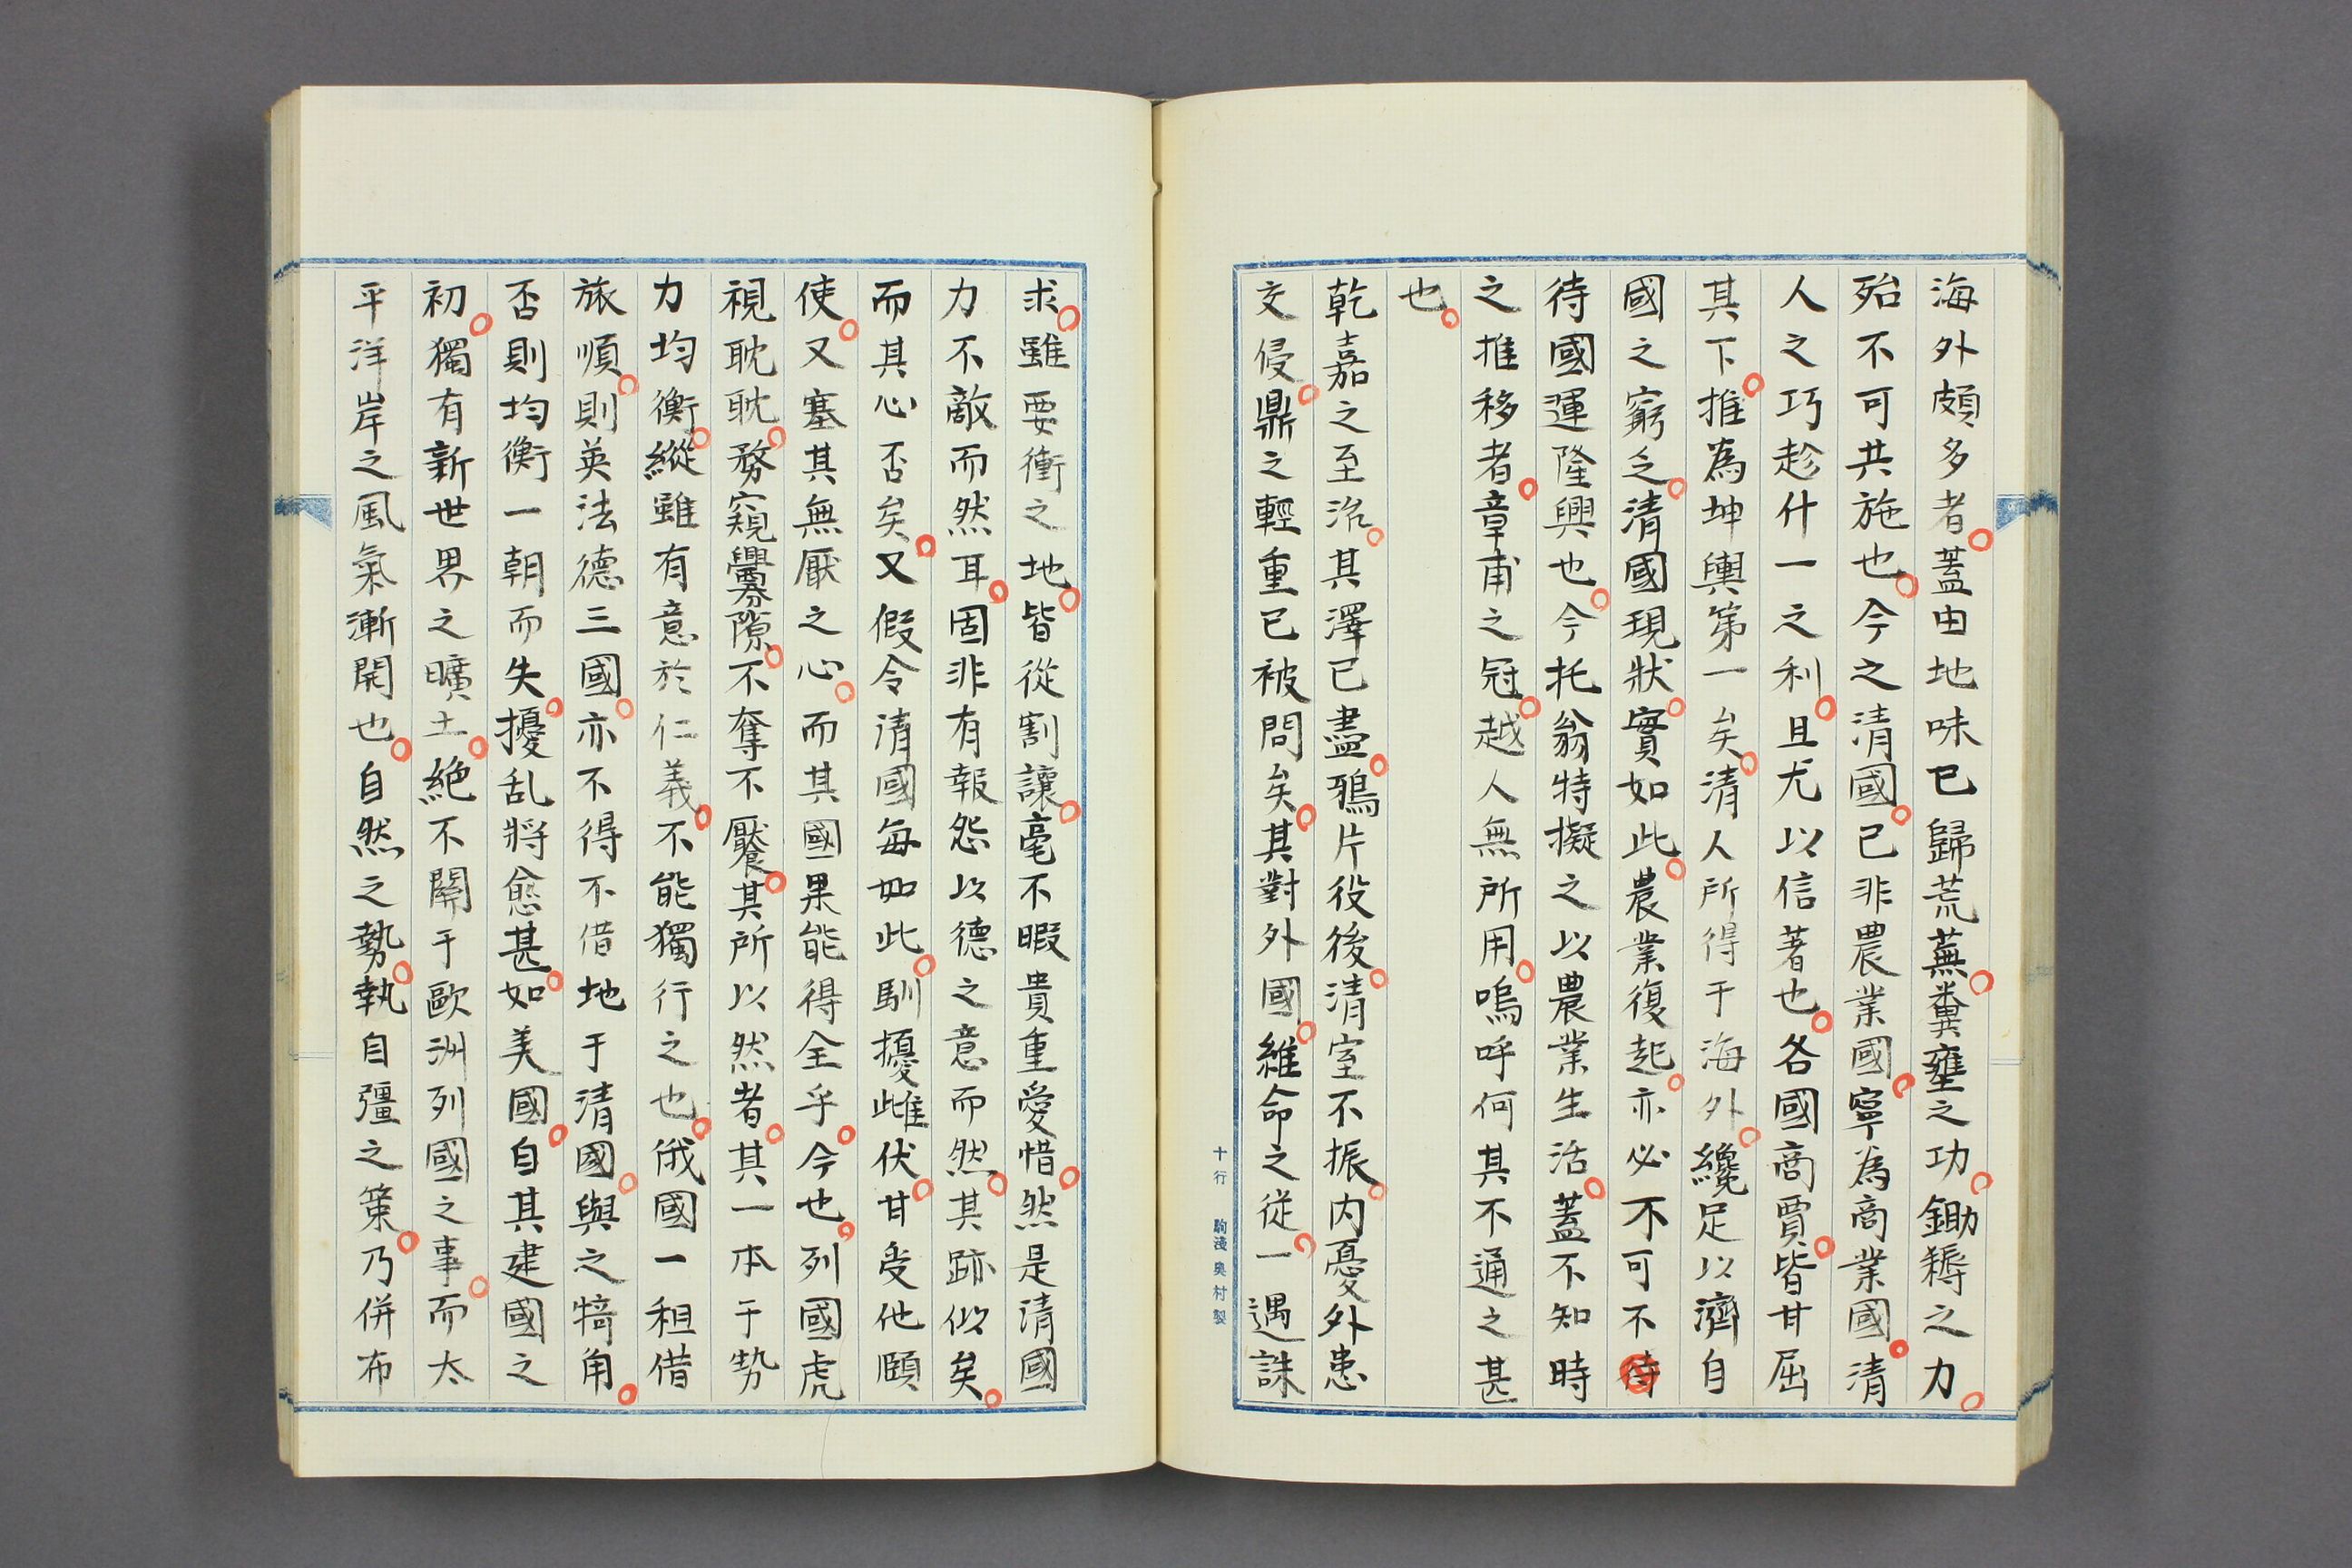 海外頗多者。蓋由地味已歸荒蕪。糞壅之功。鋤耨之力。
殆不可共施也。今之清國。已非農業國。寧為商業國。清
人之巧趁什一之利。且尤以信著也。各國商賈。皆甘屈
其下。推為坤輿第一矣。清人所得于海外。纔足以濟自
國之窮乏。清國現狀。實如此。農業復起。亦必不可不待
待國運隆興也。今托翁特擬之以農業生活。蓋不知時
之推移者。章甫之冠。越人無所用。嗚呼何其不通之甚
也。
乾嘉之至治。其澤已盡。鴉片役後。清室不振。内憂外患
交侵。鼎之輕重已被問矣。其對外國。維命之從。一遇誅
十行 駒淺奥村製
求。雖要衝之地。皆從割讓。毫不暇貴重愛惜。然是清國
力不敵而然耳。固非有報怨以德之意而然。其跡似矣。
而其心否矣。又假令清國每如此。馴擾雌伏。甘受他頤
使。又塞其無厭之心。而其國果能得全乎。今也。列國虎
視耽耽。務窺釁隙。不奪不饜。其所以然者。其一本于勢
力均衡。縱雖有意於仁義。不能獨行之也。俄國一租借
旅順。則英法德三國。亦不得不借地于清國。與之犄角。
否則均衡一朝而失。擾乱將愈甚。如美國。自其建國之
初。獨有新世界之曠土。絶不關于歐洲列國之事。而太
平洋岸之風氣漸開也。自然之勢。執自彊之策。乃併布